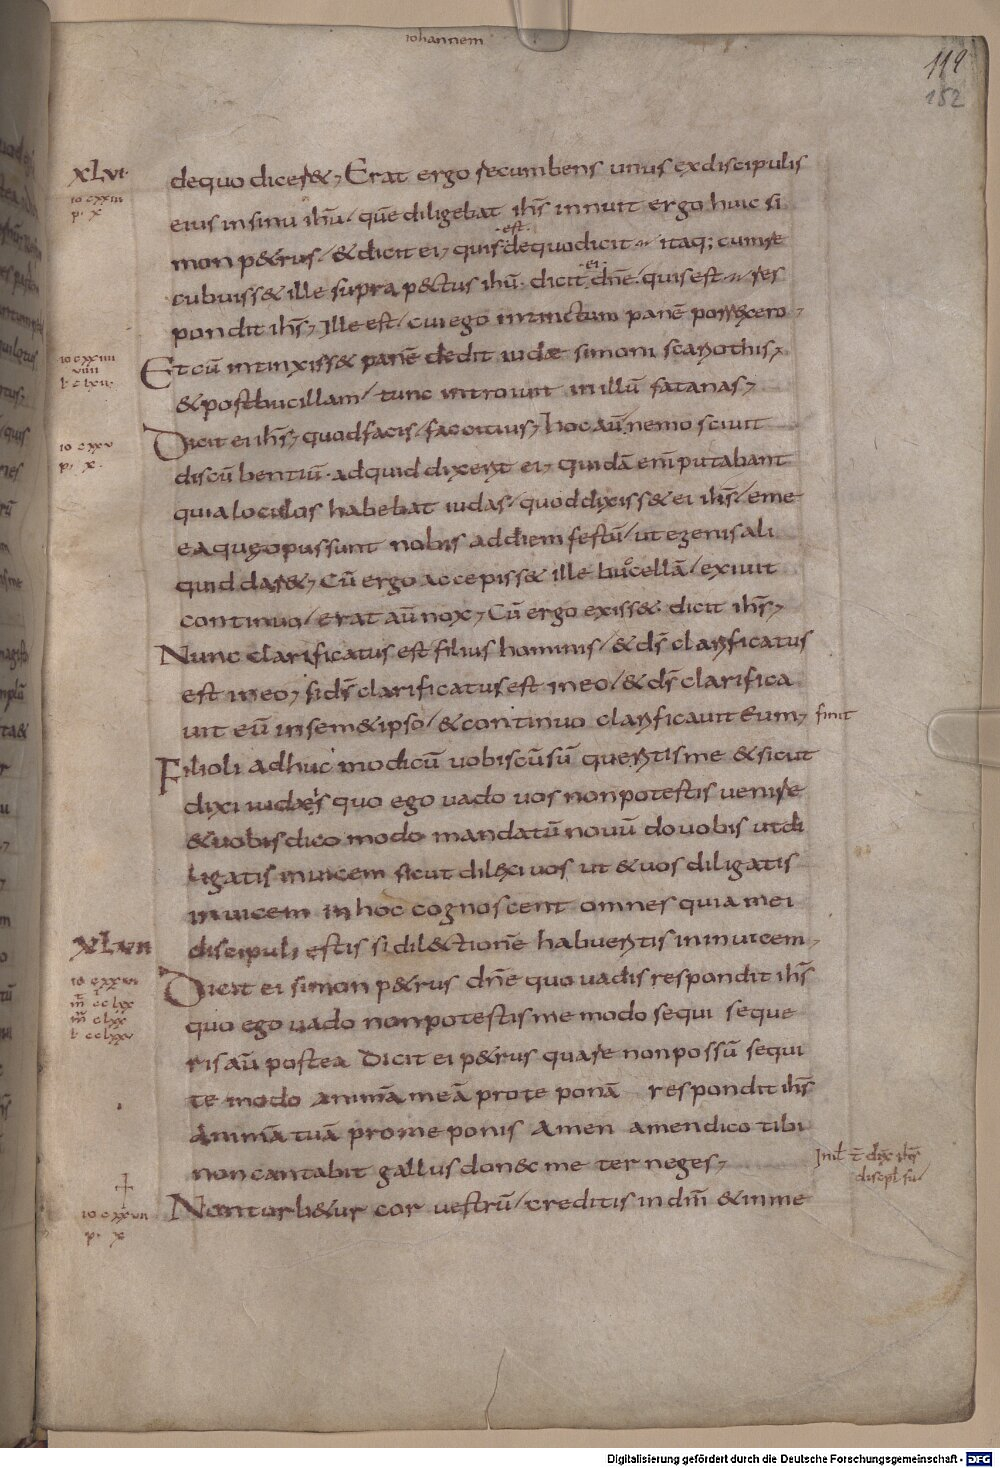 iohannem
119
152
XLVI·
dequo dicer&, Erat ergo recumbens unus exdiscipulis
io cxxiii
p. x
eius insinu ihū· quē diligebat ihs̄ innuit ergo huic si
mon p&rus / & dicit ei, quis ·est· dequodicit itaq; cumre
cubuiss& ille supra p&ctus ihū· dicit ·ei· dn̄e· quis est res
pondit ihs̄, Ille est / cui ego intinctum panē porrexero,
io cxxiiii
viiii
l· clxii·
Et cū intinxiss& panē dedit iudæ simoni scariothis,
& post bucillam / tunc introiuit in illū satanas,
io cxxv
p· x·
Dicit ei ihs̄, quod facis / fac citius, hoc aū nemo sciuit
discūbentiū· ad quid dixerit ei, quidā eni putabant
quia loculos habebat iudas / quod dixiss& ei ihs̄ / eme
ea quæ opus sunt nobis ad diem festū / ut egenis ali
quid dar&, Cū ergo accepiss& ille bucellā / exiuit
continuo / erat aū nox, Cū ergo exiss& dicit ihs̄,
Nunc clarificatus est filius hominis / & ds̄ clarificatus
est ineo, si ds̄ clarificatus est ineo / & ds̄ clarifica
uit eū insem&ipso / & continuo clarificauit eum, finit
Filioli adhuc modicū uobiscū sū queritis me & sicut
dixi iudæis quo ego uado uos non potestis uenire
& uobis dico modo mandatū nouū do uobis ut di
ligatis inuicem sicut dilexi uos ut & uos diligatis
inuicem in hoc cognoscent omnes quia mei
XLVII
discipuli estis si dil&ctionē habueritis in inuicem,
io cxxvi
m̄ cclxx
m̄ clxx
l· cclxxv
Dicit ei simon p&rus dn̄e quo uadis respondit ihs̄
quo ego uado non potestis me modo sequi seque
ris aū postea Dicit ei p&rus quare non possū sequi
te modo animā meā pro te ponā respondit ihs̄
Animā tuā pro me ponis Amen amen dico tibi
non cantabit gallus donec me ter neges,
Init̄ t̄ dix ihs̄
discipl su
io cxxvii
p· x
Non turb&ur cor uestrū / creditis in dm̄ & in me
Digitalisierung gefördert durch die Deutsche Forschungsgemeinschaft - DFG